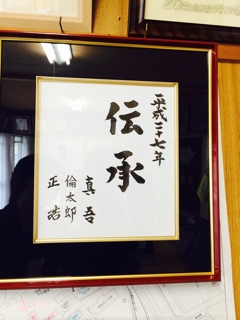 平成二十七年
伝承
真吾
倫太郎
正浩